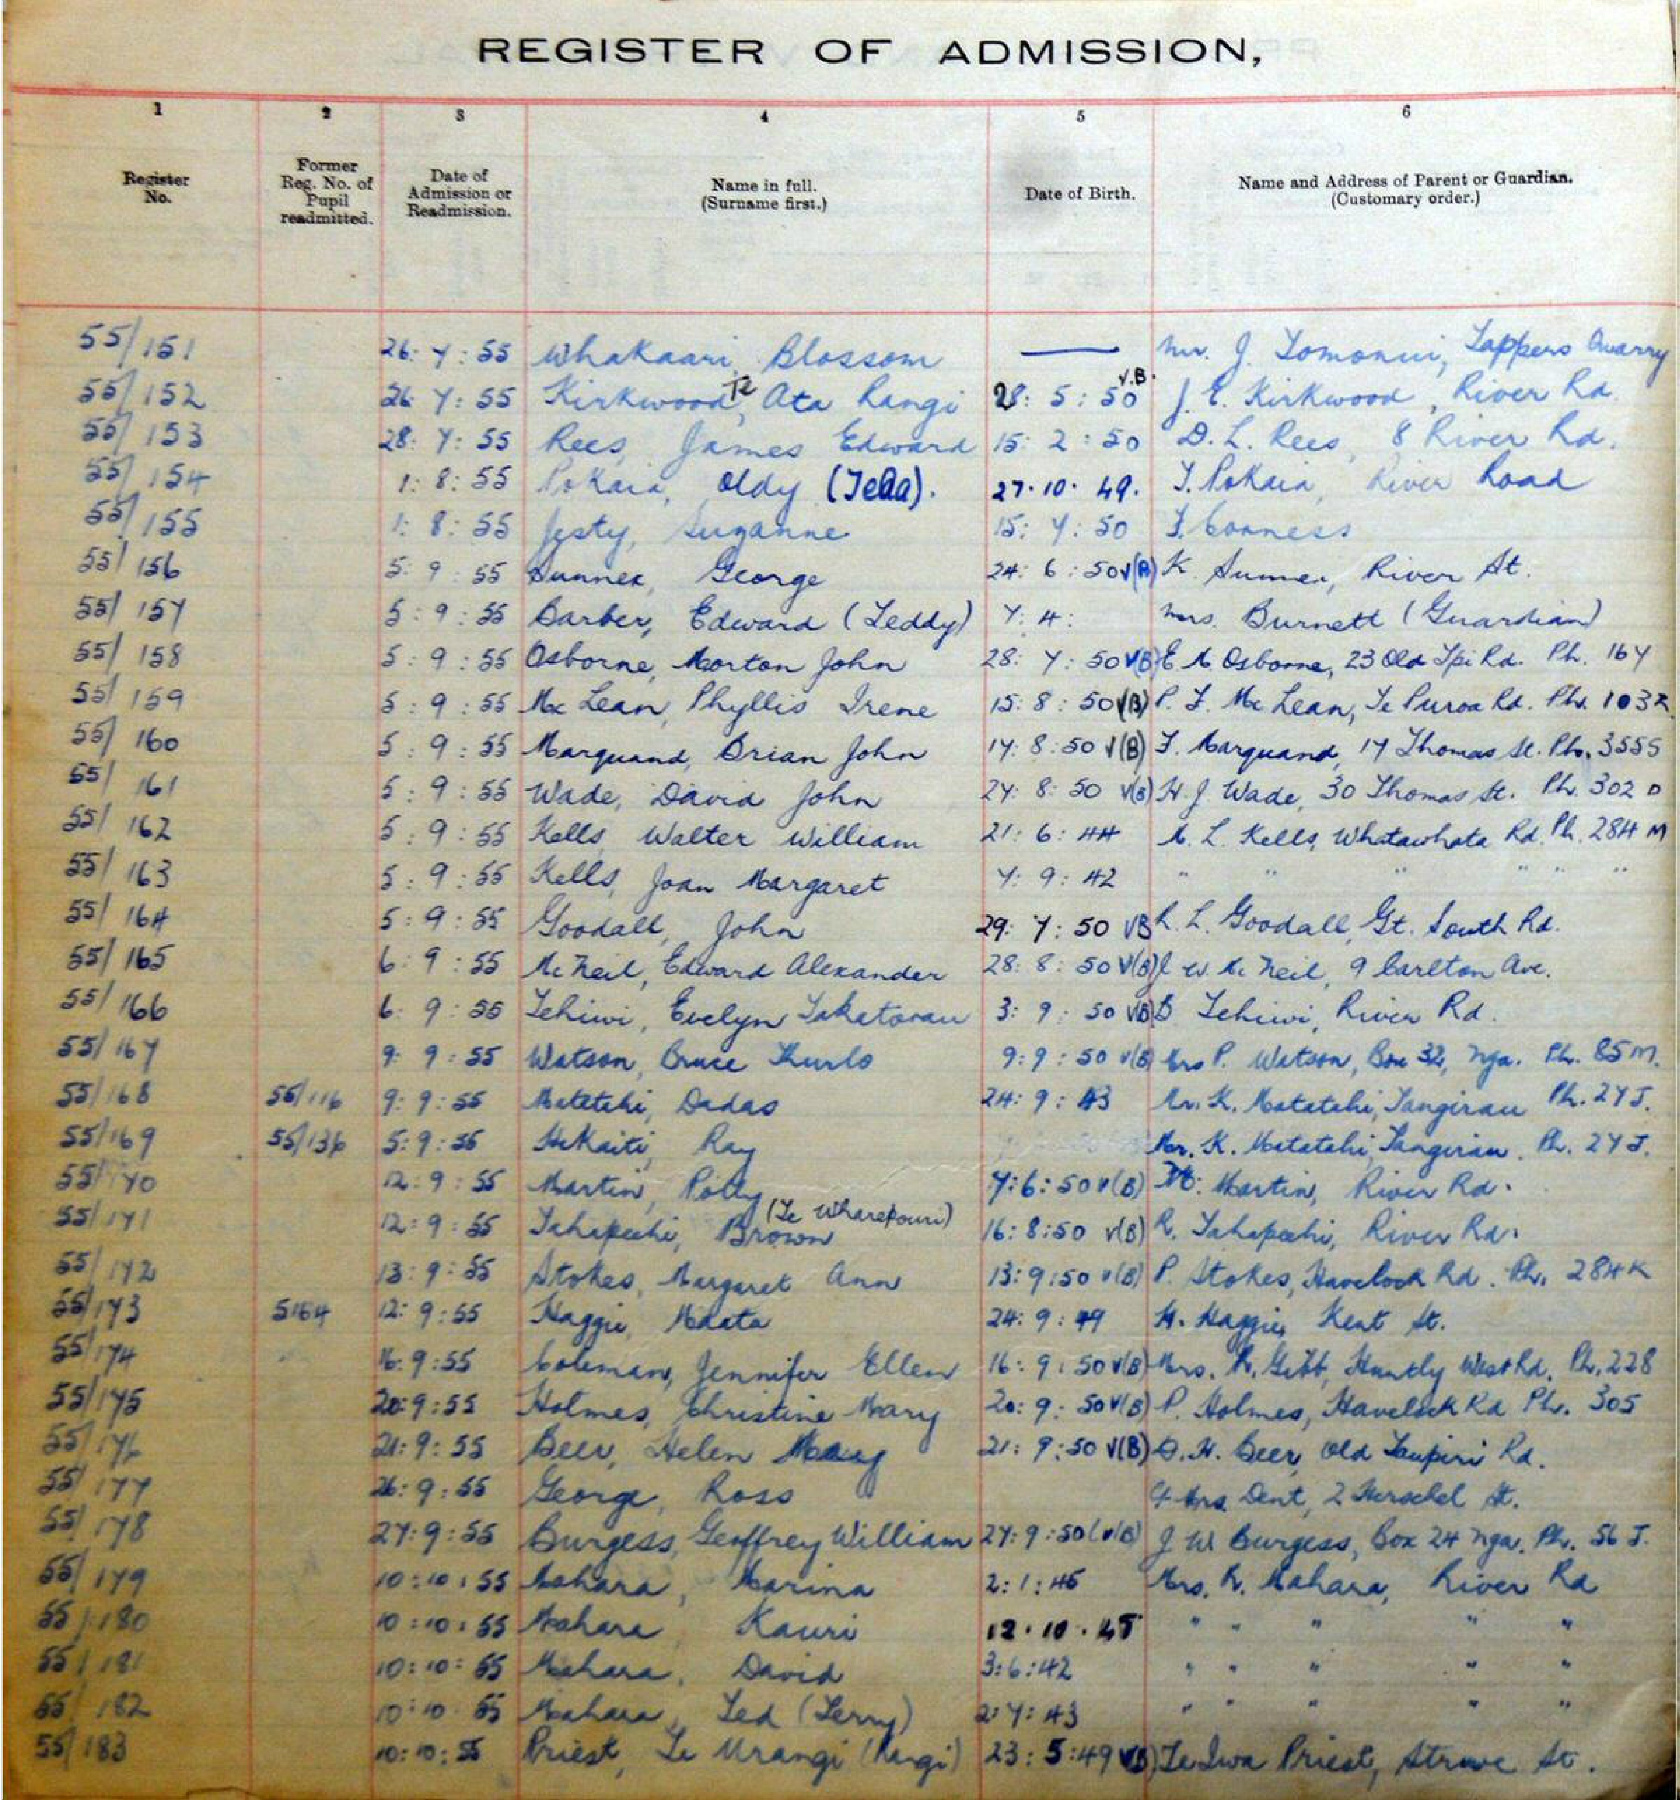 REGISTER OF ADMISSION,
1 2 3 4 5 6
Register No. Former Reg. No. of Pupil readmitted. Date of Admission or Readmission. Name in full. (Surname first.) Date of Birth. Name and Address of Parent or Guardian. (Customary order.)
55/151 26: 7: 55 Whakaari, Blossom — Mr. J. Tomonui, Tappers Quarry
55/152 26: 7: 55 Kirkwood, Te Ata Rangi 28: 5: 50 V.B. J. E. Kirkwood, River Rd.
55/153 28: 7: 55 Rees, James Edward 15: 2: 50 D. L. Rees, 8 River Rd.
55/154 1: 8: 55 Pokaia, Oldy 27.10.49. T. Pokaia, River Road
55/155 1: 8: 55 Jesty, Suzanne 15: 7: 50
55/156 5: 9: 55 George 24: 6: 50 V(B) K. River St.
55/157 5: 9: 55 Barber, Edward (Teddy) 7: 4: Mrs. Burnett (Guardian)
55/158 5: 9: 55 Osborne, Morton John 28: 7: 50 V(B) E. M. Osborne, 23 Old Tpi Rd. Ph. 167
55/159 5: 9: 55 McLean, Phyllis Irene 15: 8: 50 V(B) P. F. McLean, Te Puroa Rd. Ph. 103R
55/160 5: 9: 55 Marquand, Brian John 17: 8: 50 V(B) F. Marquand, 17 Thomas St. Ph. 355S
55/161 5: 9: 55 Wade, David John 27: 8: 50 V(B) H. J. Wade, 30 Thomas St. Ph. 302 D
55/162 5: 9: 55 Kells, Walter William 21: 6: 44 M. L. Kells, Whatawhata Rd. Ph. 284 M
55/163 5: 9: 55 Kells, Joan Margaret 7: 9: 42 " " " " " "
55/164 5: 9: 55 Goodall, John 29: 7: 50 VB R. L. Goodall, Gt. South Rd.
55/165 6: 9: 55 McNeil, Edward Alexander 28: 8: 50 V(B) J. W. McNeil, 9 Carlton Ave.
55/166 6: 9: 55 Tehiwi, Evelyn 3: 9: 50 V(B) B. Tehiwi, River Rd.
55/167 9: 9: 55 Watson, Bruce 9: 9: 50 V(B) Mrs P. Watson, Box 32, Nga. Ph. 85M.
55/168 55/116 9: 9: 55 Matatahi, Dadas 24: 9: 43 Mr. K. Matatahi, Tangirau Ph. 27J.
55/169 55/136 5: 9: 55 HeKaiti, Ray Mr. K. Matatahi, Tangirau. Ph. 27J.
55/170 12: 9: 55 Martin, Polly 7: 6: 50 V(B) Martin, River Rd.
55/171 12: 9: 55 Tahapeehi, Brown (Te Wharepouri) 16: 8: 50 V(B) R. Tahapeehi, River Rd.
55/172 13: 9: 55 Stokes, Margaret Ann 13: 9: 50 V(B) P. Stokes, Havelock Rd. Ph. 284K
55/173 5164 12: 9: 55 Haggie, Maata 24: 9: 49 H. Haggie, Kent St.
55/174 16: 9: 55 Coleman, Jennifer Ellen 16: 9: 50 V(B) Mrs. R. Gibb, Huntly West Rd. Ph. 228
55/175 20: 9: 55 Holmes, Christine Mary 20: 9: 50 V(B) P. Holmes, Havelock Rd Ph. 305
55/176 21: 9: 55 Beer, Helen Mary 21: 9: 50 V(B) D. H. Beer, Old Taupiri Rd.
55/177 26: 9: 55 George, Ross Mrs Dent, 2 Herschel St.
55/178 27: 9: 55 Burgess, Geoffrey William 27: 9: 50 (V(B) J. W. Burgess, Box 24 Nga. Ph. 56 J.
55/179 10: 10: 55 Mahara, Marina 2: 1: 45 Mrs. R. Mahara, River Rd
55/180 10: 10: 55 Mahara, Kauri 12.10.45 " " " " "
55/181 10: 10: 55 Mahara, David 3: 6: 42 " " " " "
55/182 10: 10: 55 Mahara, Ted (Terry) 2: 7: 43 " " " " "
55/183 10: 10: 55 Priest, Te Urangi (Rangi) 23: 5: 49 V(B) Te Iwa Priest, Struve St.